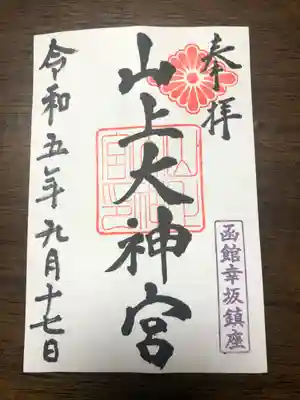 奉拝
函館幸坂鎮座
山上大神宮
令和五年九月十七日